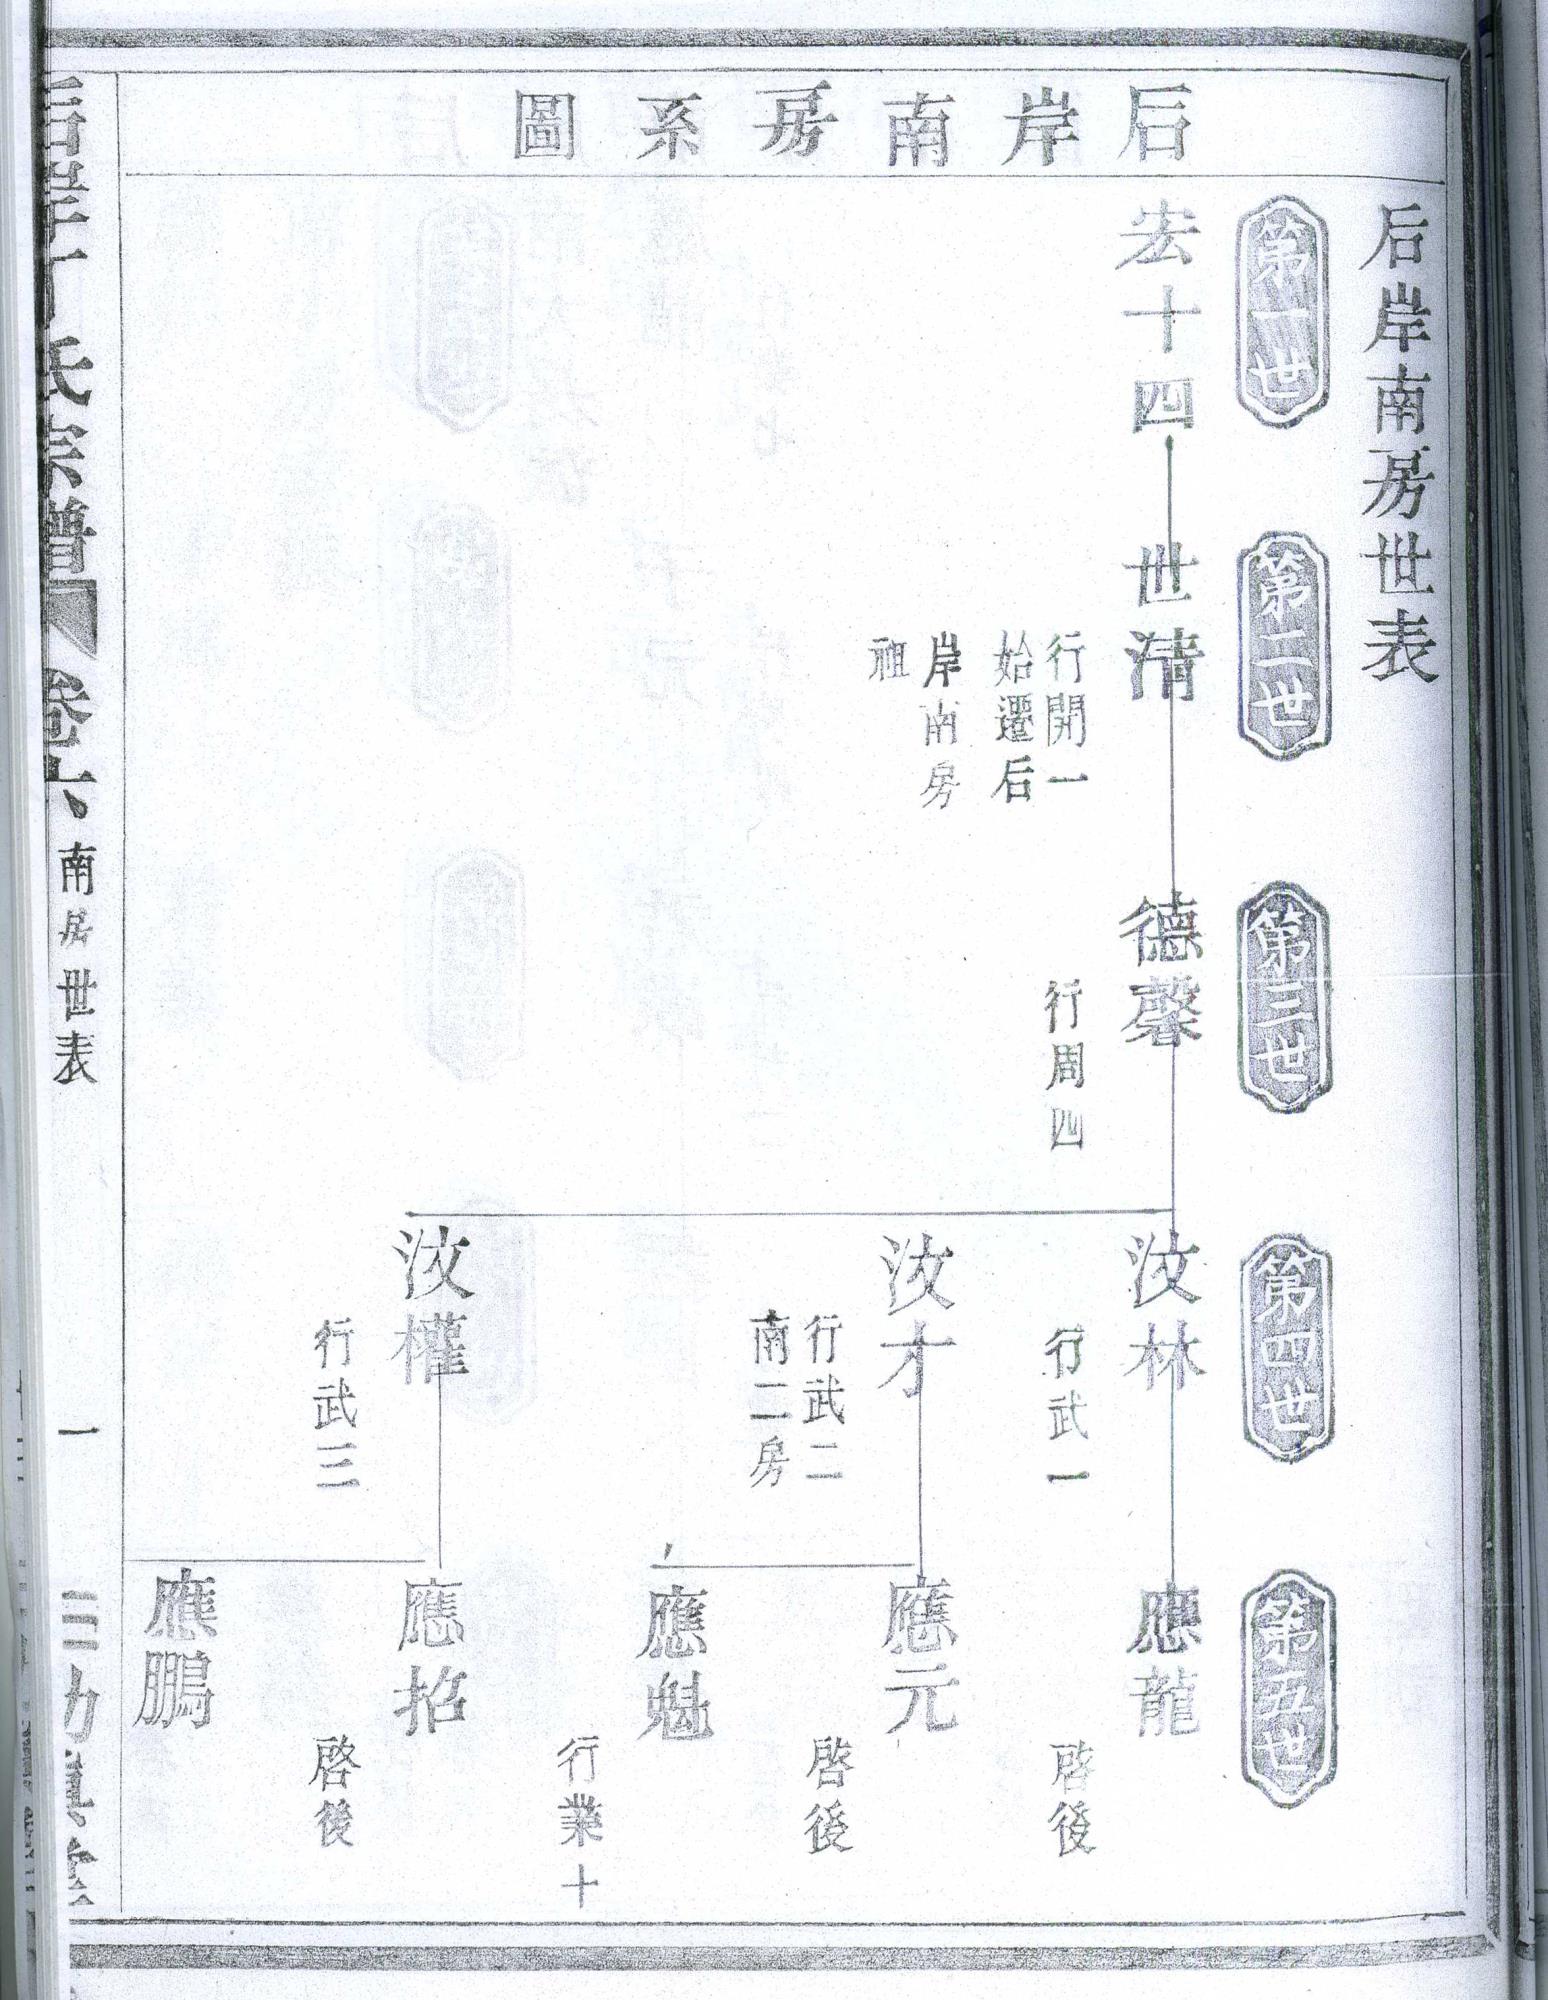 后岸南房世表
后岸南房系圖
第一世
宏十四
第二世
世清
行開一
始遷后
岸南房
祖
第三世
德馨
行周四
第四世
汶林
行武一
汶才
行武二
南二房
汶權
行武三
第五世
應龍
啓後
應元
啓後
應魁
行業十
應招
啓後
應鵬
后岸丁氏宗譜
卷六
南房世表
一